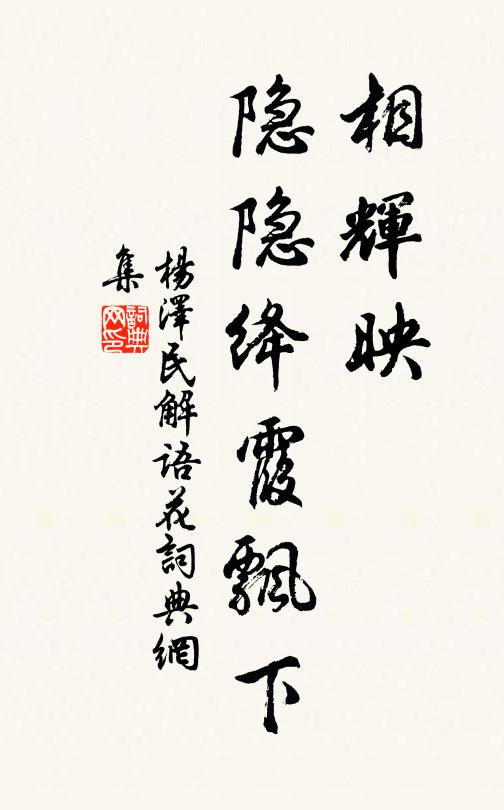 相輝映
隐隐绛霞飄下
楊澤民解语花詞典網
集
詞典
网印